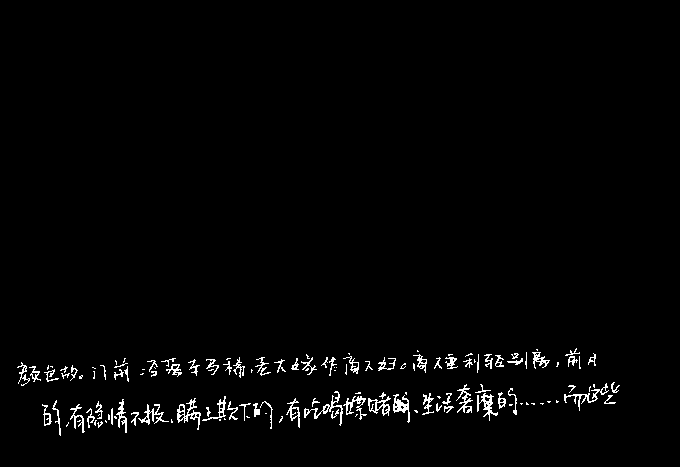 颜色故。门前冷落车马稀,老大嫁作商人妇。商人重利轻别离,前月
的,有隐情不报、瞒上欺下的,有吃喝嫖赌的、生活奢糜的……而这些